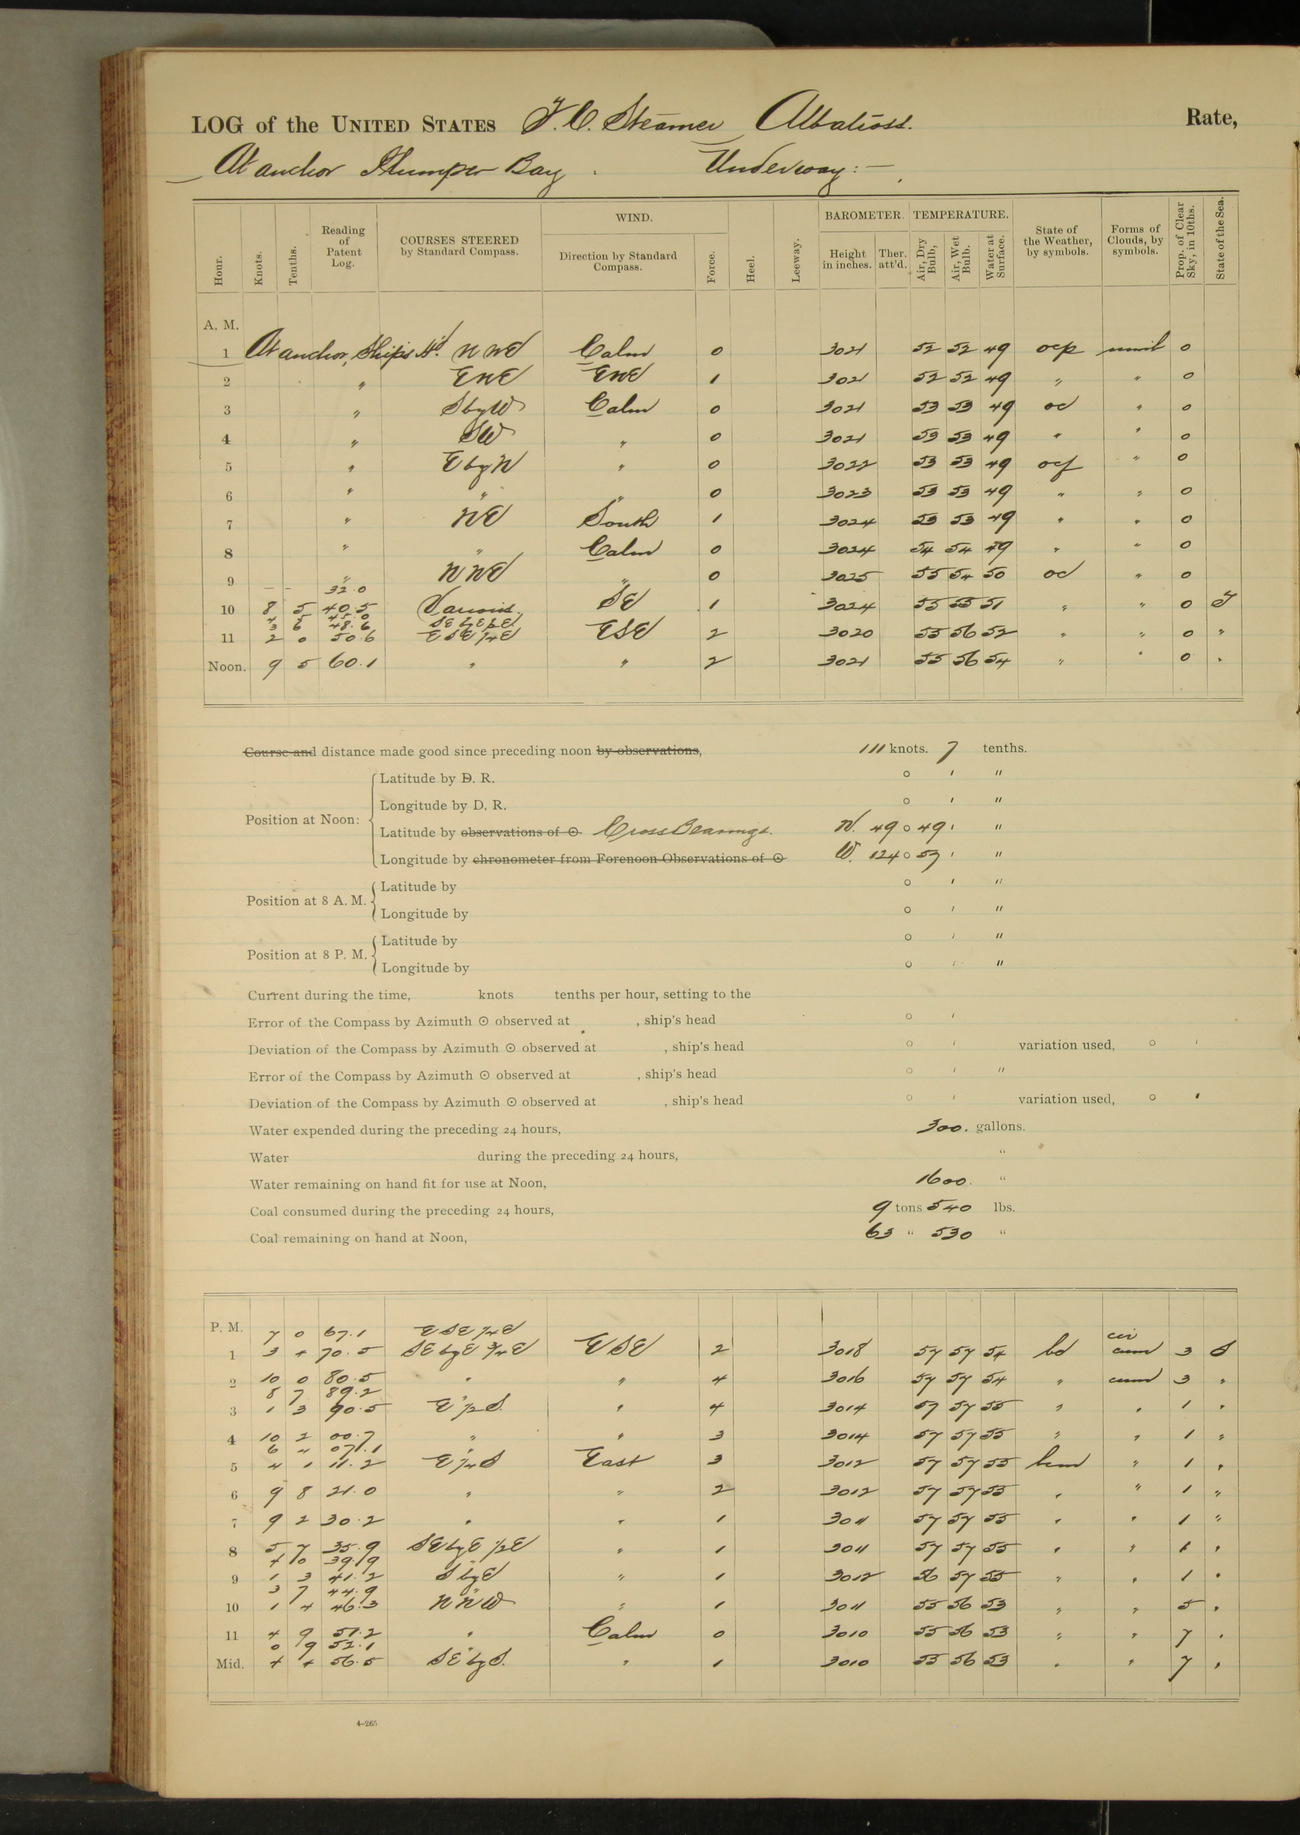 LOG of the UNITED STATES F. C. Steamer Albatross. Rate,
At anchor Plumper Bay. Underway:—
Hour. Knots. Tenths. Reading of Patent Log. COURSES STEERED by Standard Compass. WIND. Direction by Standard Compass. Force. Heel. Leeway. BAROMETER. Height in inches. Ther. att'd. TEMPERATURE. Air, Dry Bulb, Air, Wet Bulb. Water at Surface. State of the Weather, by symbols. Forms of Clouds, by symbols. Prop. of Clear Sky, in 10ths. State of the Sea.
A. M.
1 At anchor, Ship's H'd. NNE Calm 0 3021 52 52 49 ocp nimb 0
2 " ENE ENE 1 3021 52 52 49 " " 0
3 " SbyW Calm 0 3021 53 53 49 oc " 0
4 " SW " 0 3021 53 53 49 " " 0
5 " EbyN " 0 3022 53 53 49 ocf " 0
6 " " " 0 3023 53 53 49 " " 0
7 " NE South 1 3024 53 53 49 " " 0
8 " " Calm 0 3024 54 54 49 " " 0
9 " NNE " 0 3025 55 54 50 oc " 0
– – 32.0
10 8 5 40.5 Various. SE 1 3024 55 55 51 " " 0 S
4 5 45.0
3 6 48.6 SEbyE½E
11 2 0 50.6 ESE¼E ESE 2 3020 55 56 52 " " 0 "
Noon. 9 5 60.1 " " 2 3021 55 56 54 " " 0 "
Course and distance made good since preceding noon by observations, 111 knots. 7 tenths.
Position at Noon:
Latitude by D. R. ° ' "
Longitude by D. R. ° ' "
Latitude by observations of ☉ Cross Bearings. N. 49 ° 49 ' "
Longitude by chronometer from Forenoon Observations of ☉ W. 124 ° 57 ' "
Position at 8 A. M.
Latitude by ° ' "
Longitude by ° ' "
Position at 8 P. M.
Latitude by ° ' "
Longitude by ° ' "
Current during the time, knots tenths per hour, setting to the
Error of the Compass by Azimuth ☉ observed at , ship's head ° '
Deviation of the Compass by Azimuth ☉ observed at , ship's head ° ' variation used, ° '
Error of the Compass by Azimuth ☉ observed at , ship's head ° ' "
Deviation of the Compass by Azimuth ☉ observed at , ship's head ° ' variation used, ° '
Water expended during the preceding 24 hours, 300. gallons.
Water during the preceding 24 hours, "
Water remaining on hand fit for use at Noon, 1600. "
Coal consumed during the preceding 24 hours, 9 tons 540 lbs.
Coal remaining on hand at Noon, 63 " 530 "
P. M.
7 0 67.1 ESE¼E cir
1 3 4 70.5 SEbyE¾E ESE 2 3018 57 57 54 bc cum 3 S
2 10 0 80.5 " " 4 3016 57 57 54 " cum 3 "
8 7 89.2
3 1 3 90.5 E½S. " 4 3014 57 57 55 " " 1 "
4 10 2 00.7 " " 3 3014 57 57 55 " " 1 "
6 4 07.1
5 4 1 11.2 E¼S East 3 3012 57 57 55 bcm " 1 "
6 9 8 21.0 " " 2 3012 57 57 55 " " 1 "
7 9 2 30.2 " " 1 3011 57 57 55 " " 1 "
8 5 7 35.9 SEbyE½E " 1 3011 57 57 55 " " 1 "
4 0 39.9
9 1 3 41.2 SbyE " 1 3012 56 57 55 " " 1 "
3 7 44.9
10 1 4 46.3 NNW " 1 3011 55 56 53 " " 5 "
11 4 9 51.2 " Calm 0 3010 55 56 53 " " 7 "
0 9 52.1
Mid. 4 4 56.5 SEbyS. " 1 3010 55 56 53 " " 7 "
4–265